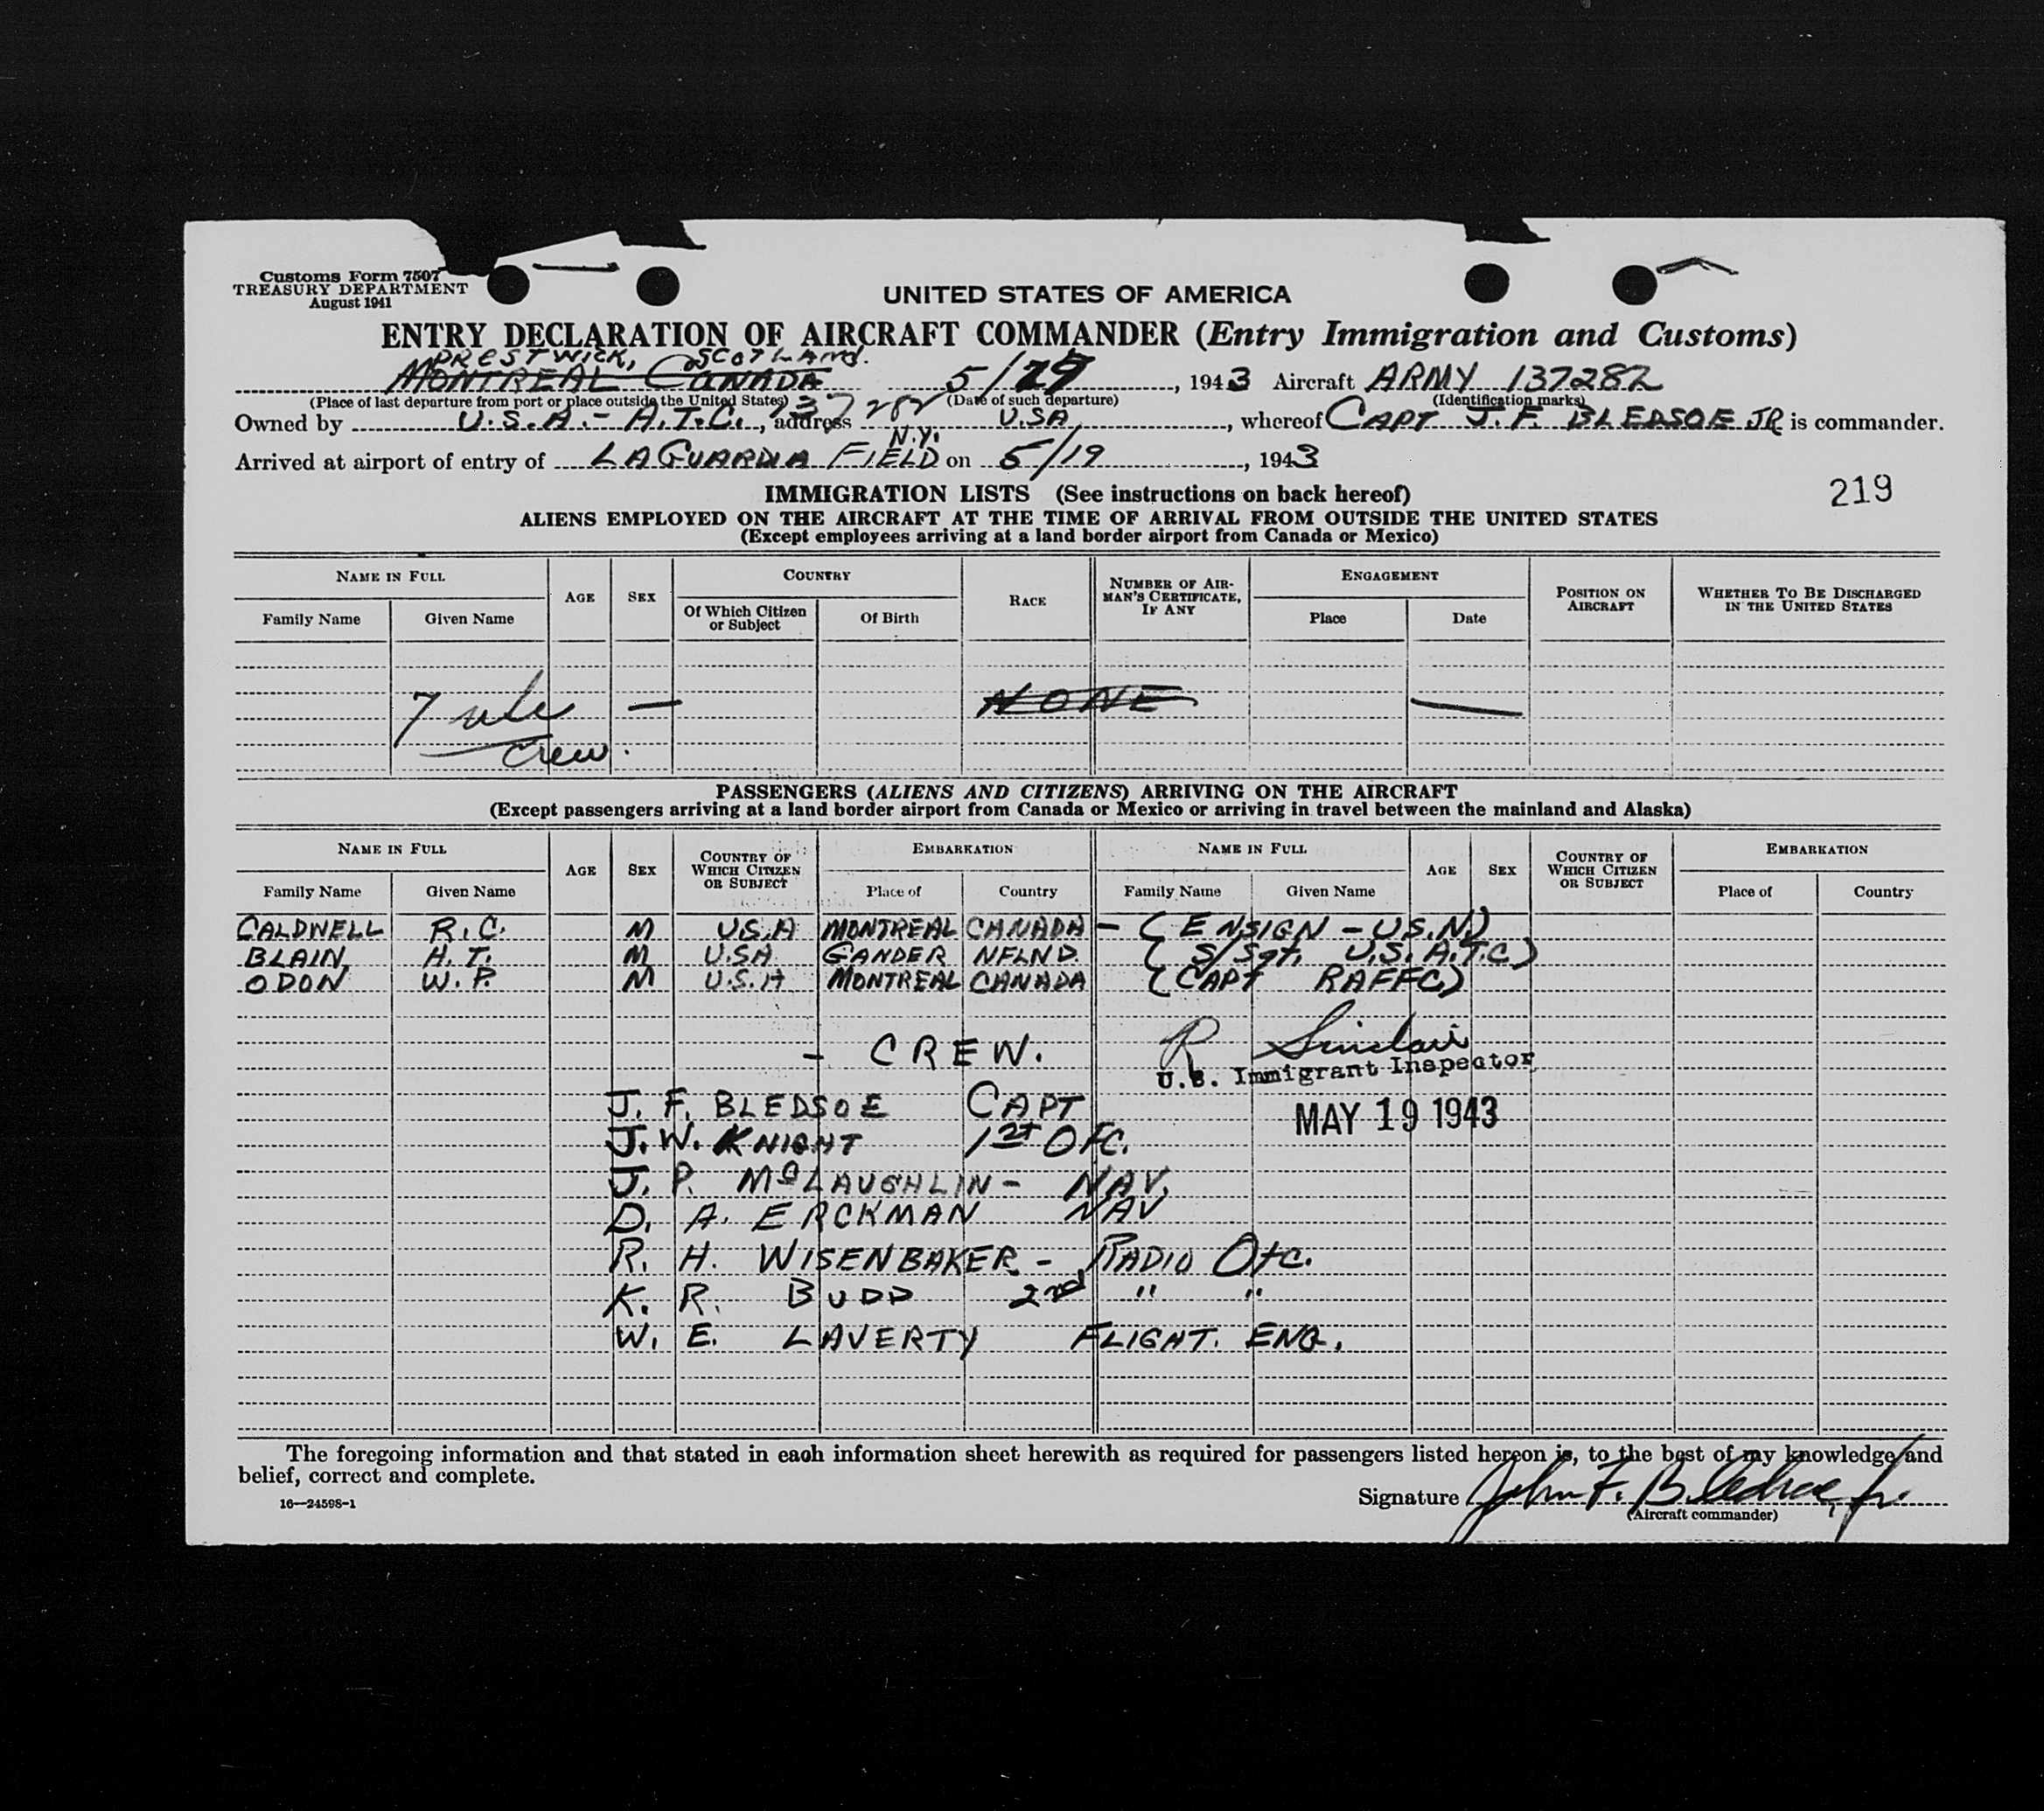 Customs Form 7507
TREASURY DEPARTMENT
August 1941
UNITED STATES OF AMERICA
ENTRY DECLARATION OF AIRCRAFT COMMANDER (Entry Immigration and Customs)
PRESTWICK, SCOTLAND.
MONTREAL CANADA 5/ , 1943 Aircraft ARMY 137282
(Place of last departure from port or place outside the United States) (Date of such departure) (Identification marks)
137282
Owned by U.S.A. - A.T.C., address U.S.A, whereof CAPT J. F. BLEDSOE JR is commander.
N.Y.
Arrived at airport of entry of LAGUARDIA FIELD on 5/19, 1943
219
IMMIGRATION LISTS (See instructions on back hereof)
ALIENS EMPLOYED ON THE AIRCRAFT AT THE TIME OF ARRIVAL FROM OUTSIDE THE UNITED STATES
(Except employees arriving at a land border airport from Canada or Mexico)
NAME IN FULL AGE SEX COUNTRY RACE NUMBER OF AIRMAN'S CERTIFICATE, IF ANY ENGAGEMENT POSITION ON AIRCRAFT WHETHER TO BE DISCHARGED IN THE UNITED STATES
Family Name Given Name Of Which Citizen or Subject Of Birth Place Date
7 — NONE —
crew.
PASSENGERS (ALIENS AND CITIZENS) ARRIVING ON THE AIRCRAFT
(Except passengers arriving at a land border airport from Canada or Mexico or arriving in travel between the mainland and Alaska)
NAME IN FULL AGE SEX COUNTRY OF WHICH CITIZEN OR SUBJECT EMBARKATION NAME IN FULL AGE SEX COUNTRY OF WHICH CITIZEN OR SUBJECT EMBARKATION
Family Name Given Name Place of Country Family Name Given Name Place of Country
CALDWELL R.C. M U.S.A MONTREAL CANADA - (ENSIGN - U.S.N.)
BLAIN H. T. M U.S.A GANDER NFLND. (S/Sgt. U.S.A.T.C.)
ODON W. P. M U.S.A MONTREAL CANADA (CAPT RAFFC)
- CREW. R Sinclair
U.S. Immigrant Inspector
J. F. BLEDSOE CAPT
MAY 19 1943
J. W. KNIGHT 1st OFC.
J. P. McLAUGHLIN - NAV.
D. A. ERCKMAN NAV
R. H. WISENBAKER - RADIO Ofc.
K. R. BUDD 2nd " "
W. E. LAVERTY FLIGHT. ENG.
The foregoing information and that stated in each information sheet herewith as required for passengers listed hereon is, to the best of my knowledge and
belief, correct and complete.
16—24598-1
Signature John F. Bledsoe, Jr.
(Aircraft commander)